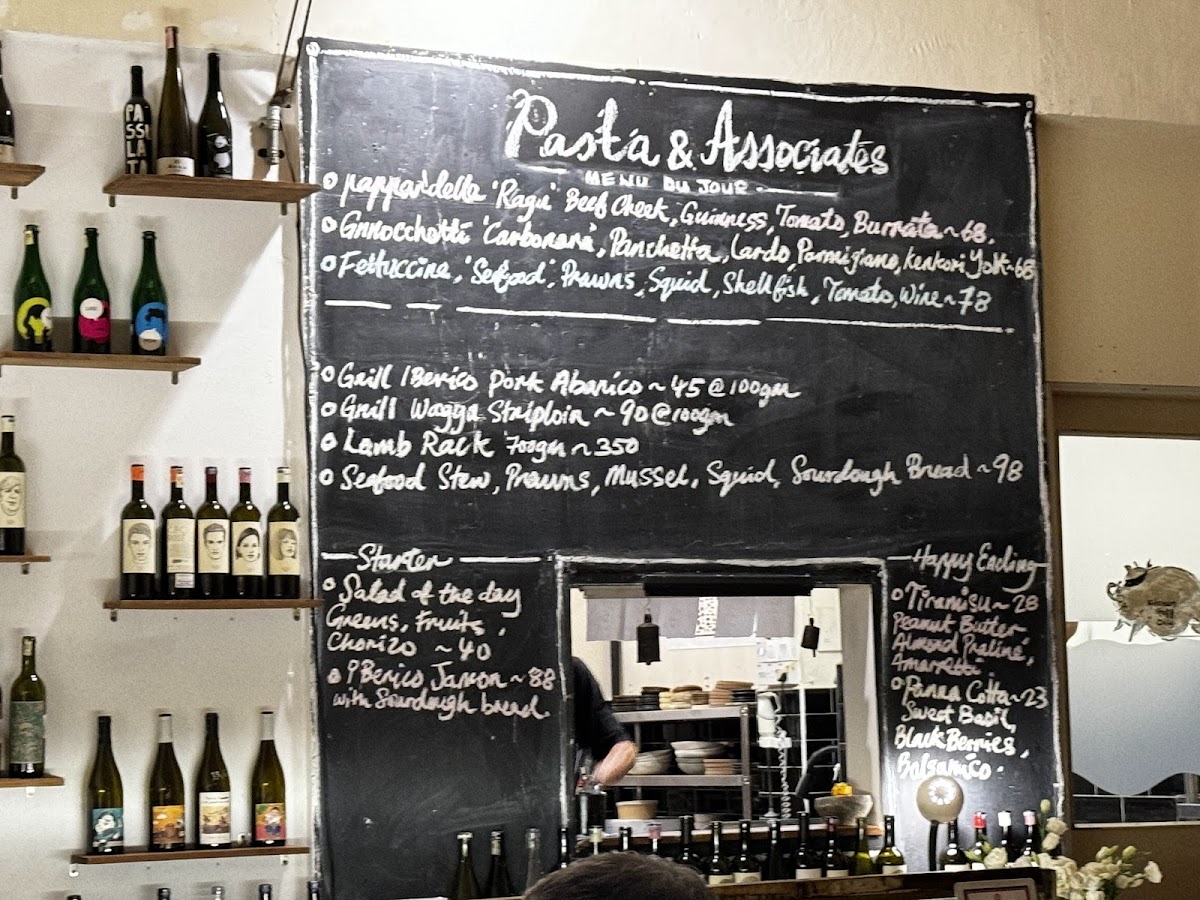 Pasta & Associates
MENU DU JOUR
pappardelle 'Ragu' Beef Cheek, Guinness, Tomato, Burrata ~ 68.
Gnnocchetti 'Carbonara', Panchetta, Lardo, Parmigiano, Kenkori Yolk ~ 68
Fettuccine, 'Seafood', Prawns, Squid, Shellfish, Tomato, Wine ~ 78
Grill IBerico Pork Abanico ~ 45 @ 100gm
Grill Wagga Striploin ~ 90 @ 100gm
Lamb Rack 700gm ~ 350
Seafood Stew, Prawns, Mussel, Squid, Sourdough Bread ~ 98
Starter
Salad of the day
Greens, Fruits,
Chorizo ~ 40
IBerico Jamon ~ 88
with Sourdough bread.
Happy Ending
Tiramisu ~ 28
Peanut Butter,
Almond Praline,
Amarretti
Panna Cotta ~ 23
Sweet Basil,
BlackBerries,
Balsamico.
PA
SSI
LA
TA